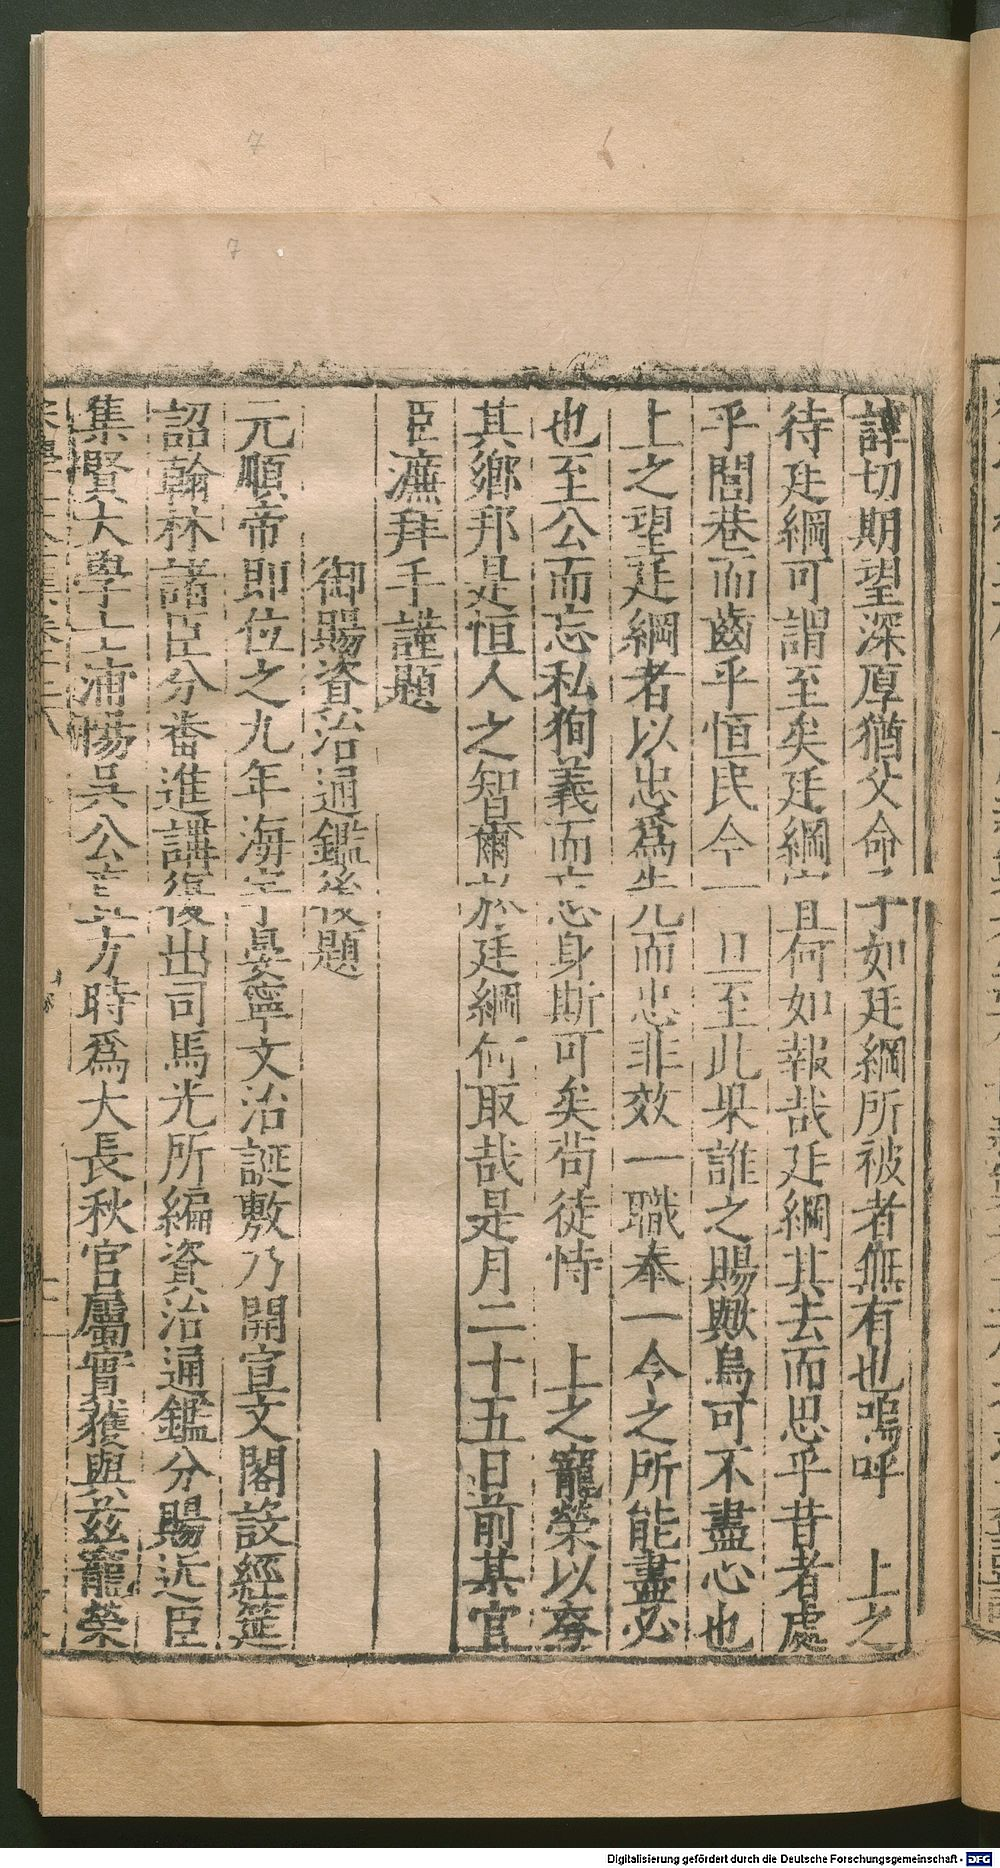 諄切期望深厚猶父命子如廷綱所被者無有也嗚呼　上之
待廷綱可謂至矣廷綱宜何如報哉廷綱其去而思乎昔者處
乎閭巷而齒乎恒民今一旦至此果誰之賜歟烏可不盡心也
上之望廷綱者以忠爲先而忠非效一職奉一今之所能盡必
也至公而忘私狥義而忘身斯可矣茍徒恃　上之寵榮以夸
其鄉邦是恒人之智爾於廷綱何取哉是月二十五日前某官
臣濂拜手謹題
御賜資治通鑑後題
元順帝即位之九年海宇晏寧文治誕敷乃開宣文閣設經筵
詔翰林諸臣分番進講復出司馬光所編資治通鑑分賜近臣
集賢大學士浦陽吳公直方時爲大長秋官屬實獲與茲寵榮
7
7
Digitalisierung gefördert durch die Deutsche Forschungsgemeinschaft - DFG